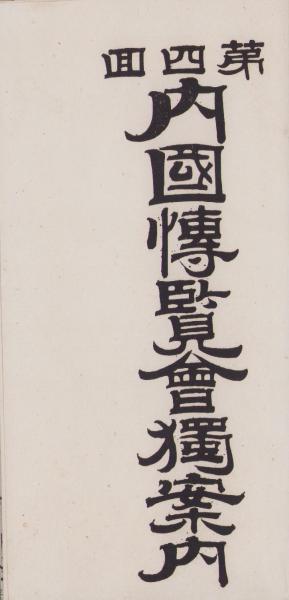 第四回
内國博覧會獨案内